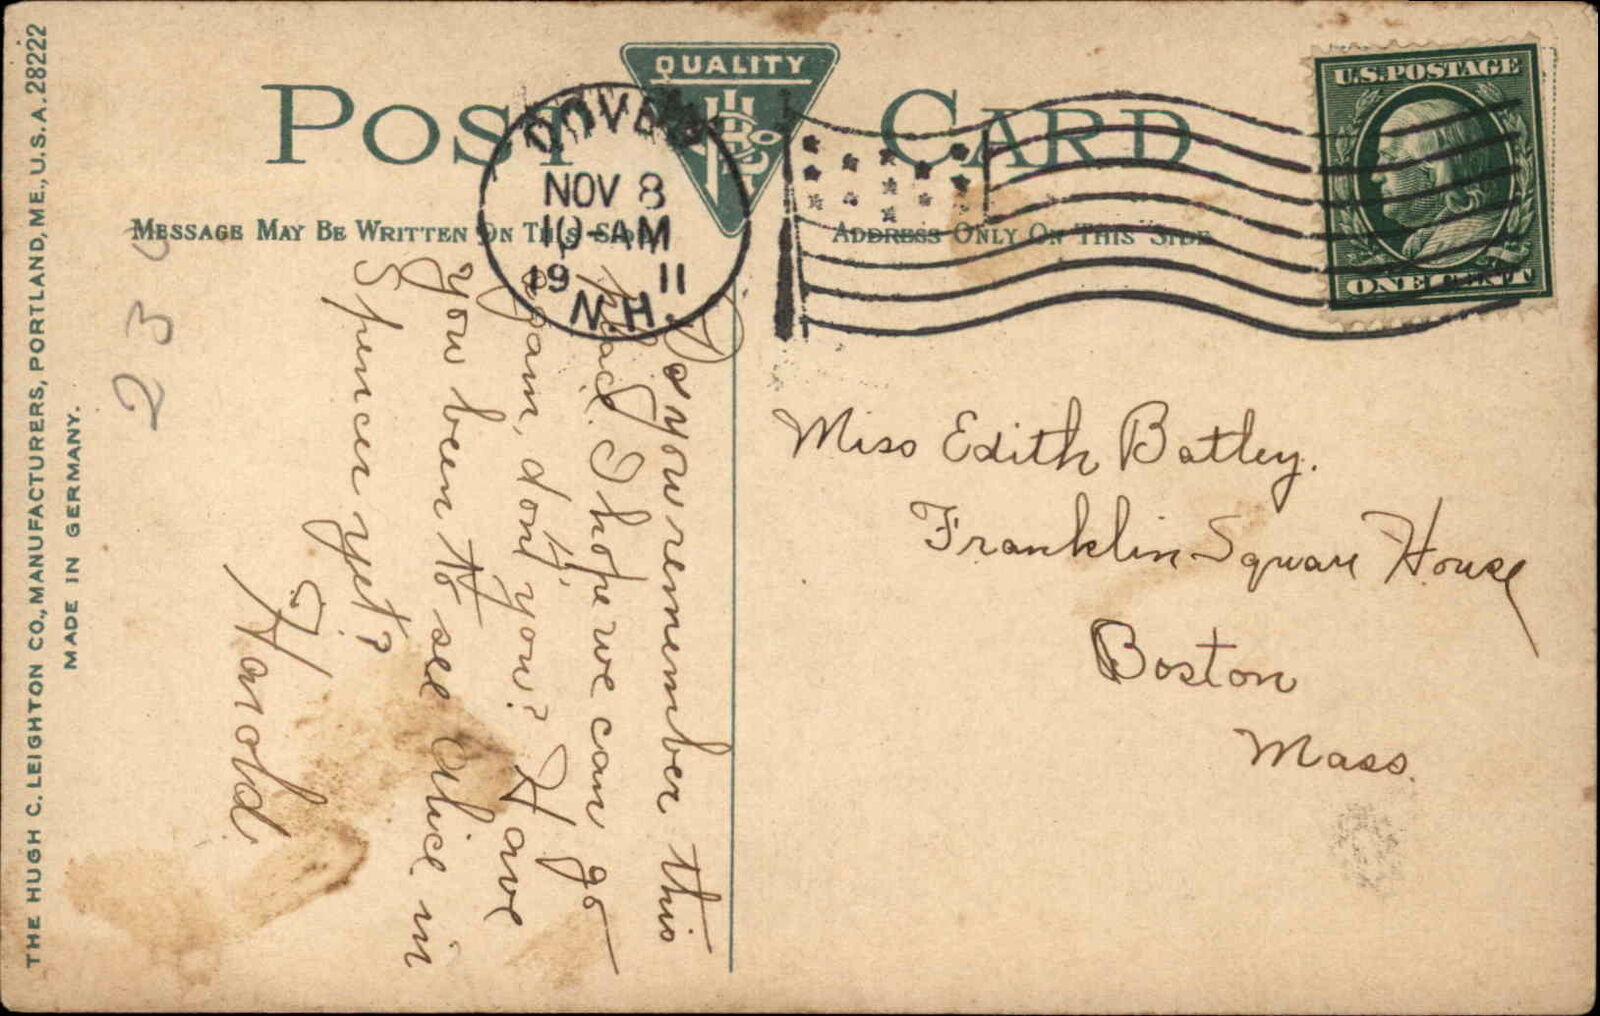 POST CARD
QUALITY
MESSAGE MAY BE WRITTEN ON THIS SIDE
ADDRESS ONLY ON THIS SIDE
DOVER
NOV 8
10-AM
19 11
N.H.
U.S. POSTAGE
ONE CENT
Miss Edith Batley.
Franklin Square House
Boston
Mass.
Do you remember this
road. I hope we can go
again, don't you? Have
you been to see Alice in
Spencer yet?
H. Harold
230
THE HUGH C. LEIGHTON CO., MANUFACTURERS, PORTLAND, ME., U.S.A. 28222
MADE IN GERMANY.